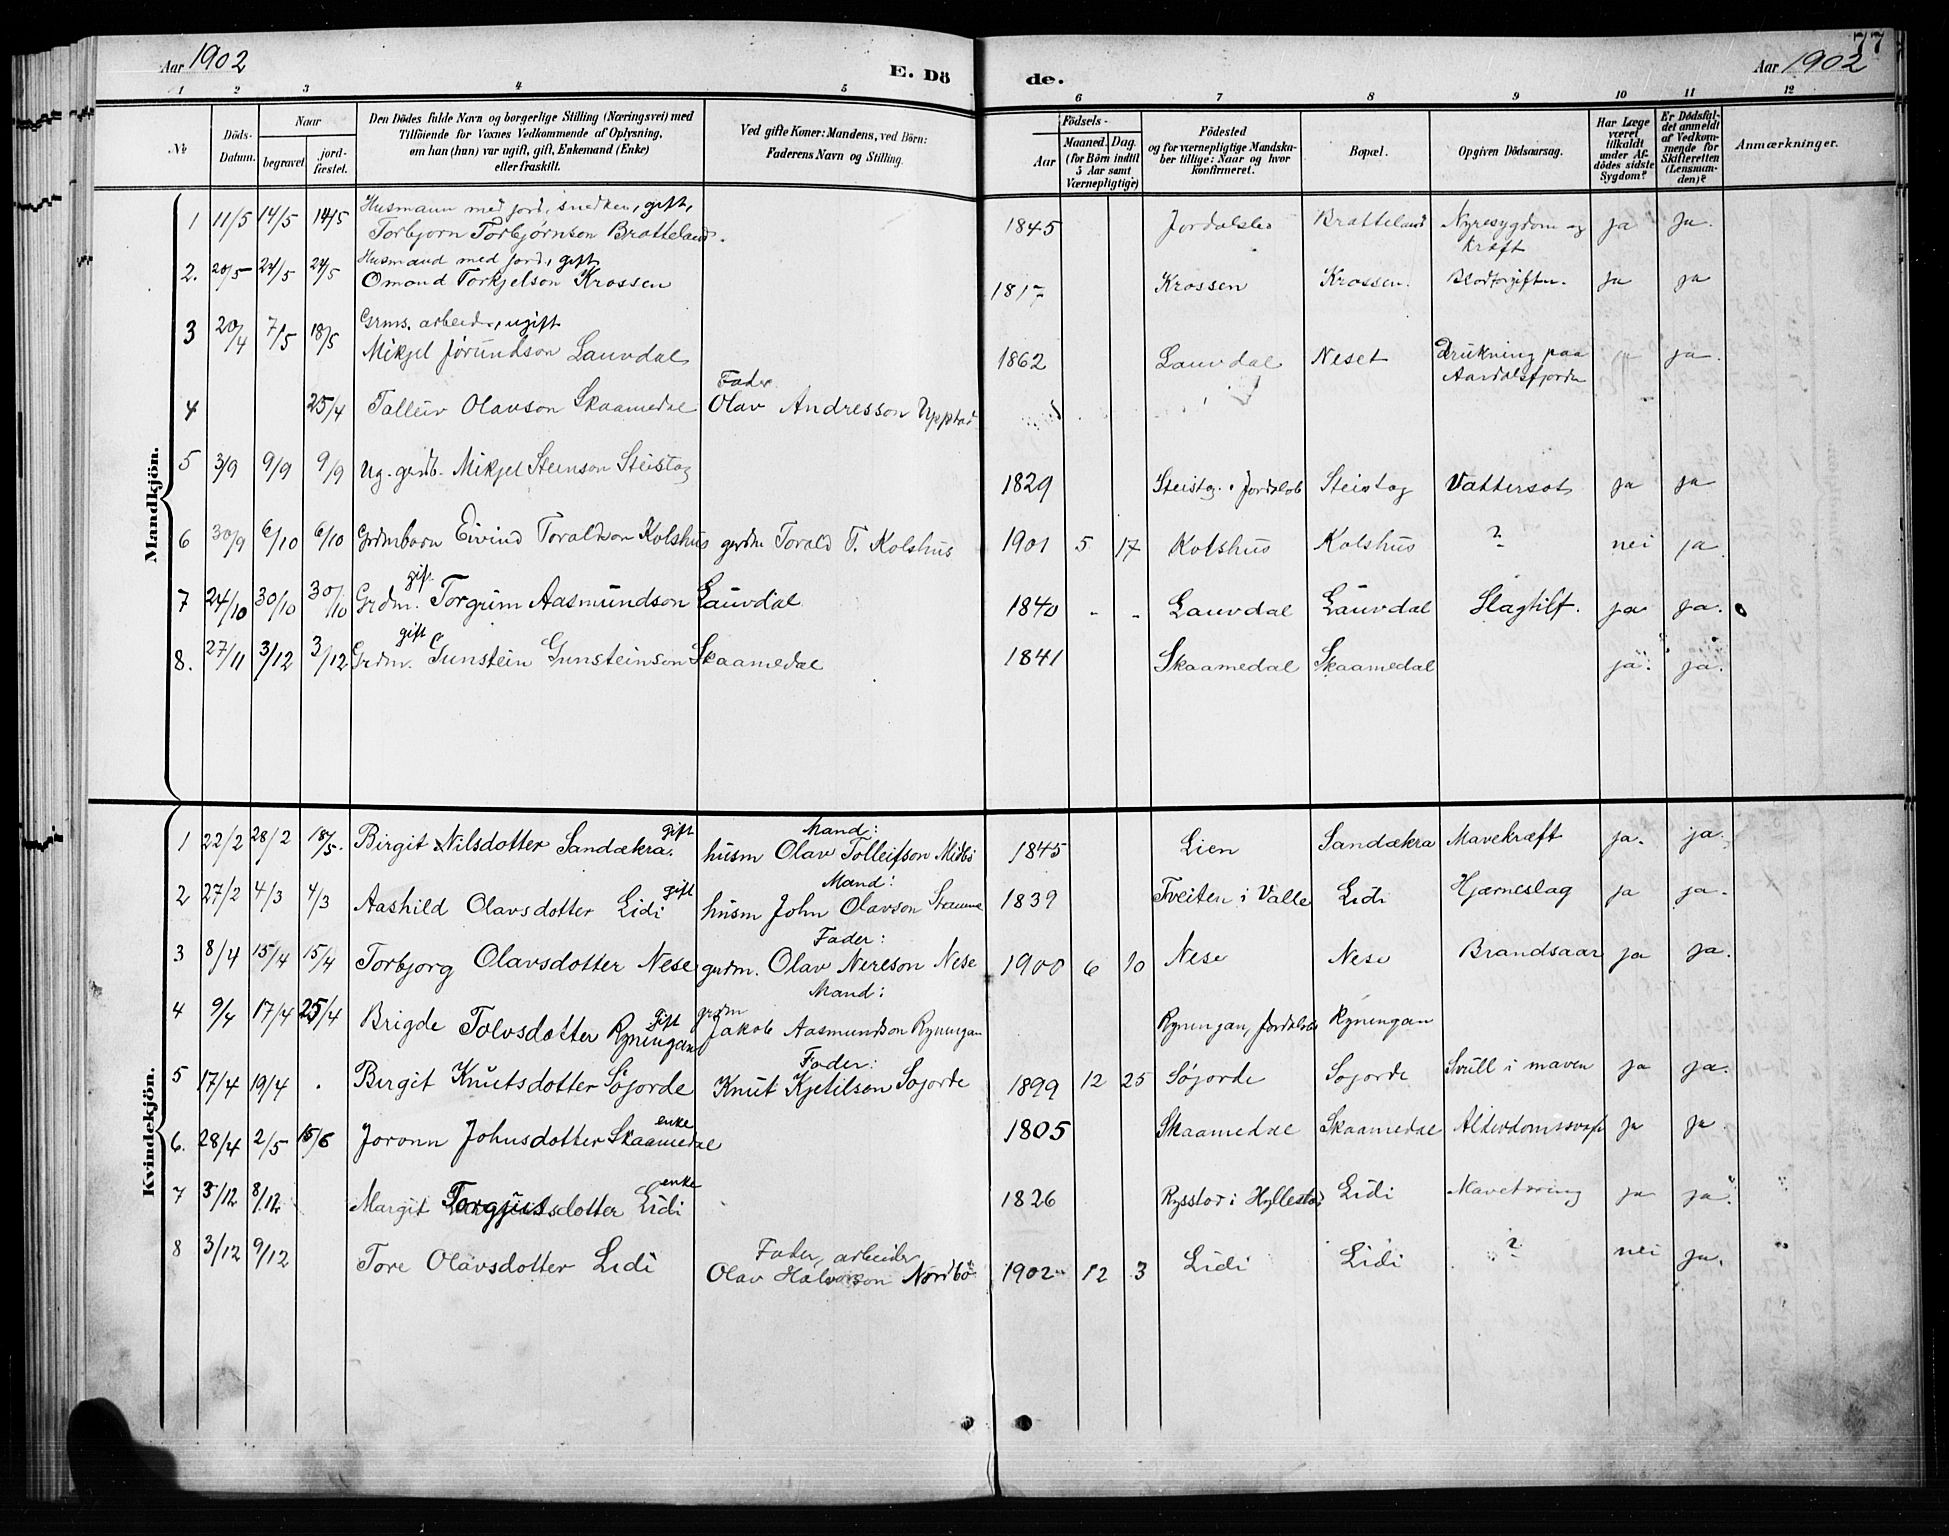 Aar 1902
E. Dö de.
Aar 1902
77
1 2 3 4 5 6 7 8 9 10 11 12
№
Döds-Datum.
Naar
begravet
jordfæstet.
Den Dödes fulde Navn og borgerlige Stilling (Næringsvei) med
Tilföiende for Voxnes Vedkommende af Oplysning,
om han (hun) var ugift, gift, Enkemand (Enke)
eller fraskilt.
Ved gifte Koner: Mandens, ved Börn:
Faderens Navn og Stilling.
Födsels-
Aar
Maaned. Dag.
(for Börn indtil
5 Aar samt
Værnepligtige)
Födested
og for værnepligtige Mandskaber tillige: Naar og hvor
konfirmeret.
Bopæl.
Opgiven Dödsaarsag.
Har Læge
været
tilkaldt
under Afdödes sidste
Sygdom?
Er Dödsfaldet anmeldt
af Vedkommende for
Skifteretten
(Lensmanden)?
Anmærkninger.
Mandkjön.
Husmann med jord, snedker, gift,
1 11/5 14/5 14/5 Torbjorn Torbjørnson Bratteland. 1845 Jordalsbø Bratteland Nyresygdom og Kræft ja ja.
Husmand med jord, gift
2. 20/5 24/5 24/5 Omond Torkjelson Krossen 1817 Krossen Krossen. Blodforgiftn. ja ja
Grms. arbeider, ugift
3 20/4 7/5 18/5 Mikjel Jørundson Lauvdal 1862 Lauvdal Neset Drukning paa Aardalsfjorden ja ja.
Fader
4 25/4 Talleiv Olavson Skaamedal Olav Andresson Uppstad
5 3/9 9/9 9/9 Ug. grdb. Mikjel Steinson Steistog 1829 Steistog i Jordalsb Steistog Vattersot ja ja
6 30/9 6/10 6/10 Grdmbarn Eivind Toraldson Kolshus grdm Torald T. Kolshus 1901 5 17 Kolshus Kolshus ? nei ja
gift
7 24/10 30/10 30/10 Grdm. Torgrim Aasmundson Lauvdal 1840 - - Lauvdal Lauvdal Slagtilf. ja ja.
gift
8. 27/11 3/12 3/12 Grdm. Gunstein Gunsteinson Skaamedal 1841 Skaamedal Skaamedal ja. ja.
Kvindekjön.
gift Mand:
1 22/2 28/2 18/5. Birgit Nilsdotter Sandækra. husm Olav Tolleifson Midbö 1845 Lien Sandækra Mavekræft ja. ja.
gift Mand:
2 27/2 4/3 4/3 Aashild Olavsdotter Lidi husm John Olavson Skaame 1839 Tveiten i Valle Lidi Hjærneslag ja ja.
Fader:
3 8/4 15/4 15/4 Torbjorg Olavsdotter Nese grdm. Olav Nereson Nese 1900 6 10 Nese Nese Brandsaar ja ja.
Mand:
4 9/4 17/4 25/4 Brigde Tolvsdotter Ryningan gift grdm Jakob Aasmundson Ryningan Ryningan, Jordalsbø Ryningan
Fader:
5 17/4 19/4 . Birgit Knutsdotter Söjorde Knut Kjetilson Sojorde 1899 12 25 Söjorde Sojorde Svull i maven ja ja.
enke
6. 28/4 2/5 15/6 Joronn Johnsdotter Skaamedal 1805 Skaamedal Skaamedal Alderdomssvagh ja ja.
enke
7 3/12 8/12 Margit Torgjusdotter Lidi 1826 Rysstad i Hyllestad Lidi Mavetæring ja ja.
Fader, arbeider
8 3/12 9/12 Tore Olavsdotter Lidi Olav Halvorson Nordbö 1902 12 3 Lidi Lidi ? nei ja.